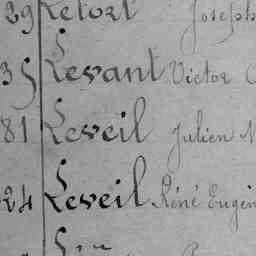 29 Letort Joseph
35 Levant Victor
81 Leveil Julien
24 Leveil Réné Eugèn